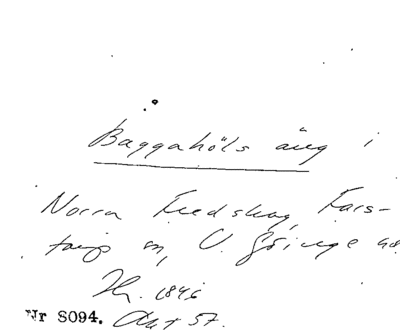 Baggahöls äng i
Norra Fredskog, Fars-
torp sn, V. Göinge hd.
Hr. 1846
Nr S094. Akt 57.